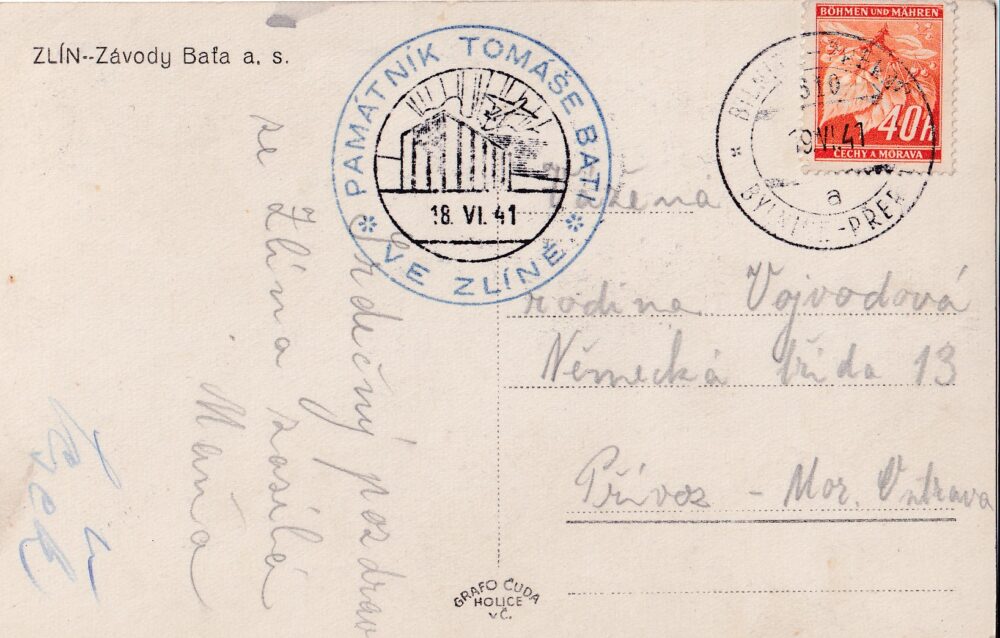 ZLÍN--Závody Baťa a. s.
PAMÁTNÍK TOMÁŠE BATI
18. VI. 41
VE ZLÍNĚ
BÖHMEN UND MÄHREN
40 h
ČECHY A MORAVA
310
19. VI. 41
a
Srdečný pozdrav
ze Zlína zasílá
Máňa
Vážená
rodina Vojvodová
Německá třída 13
Přívoz - Mor. Ostrava
GRAFO ČUDA
HOLICE
v Č.